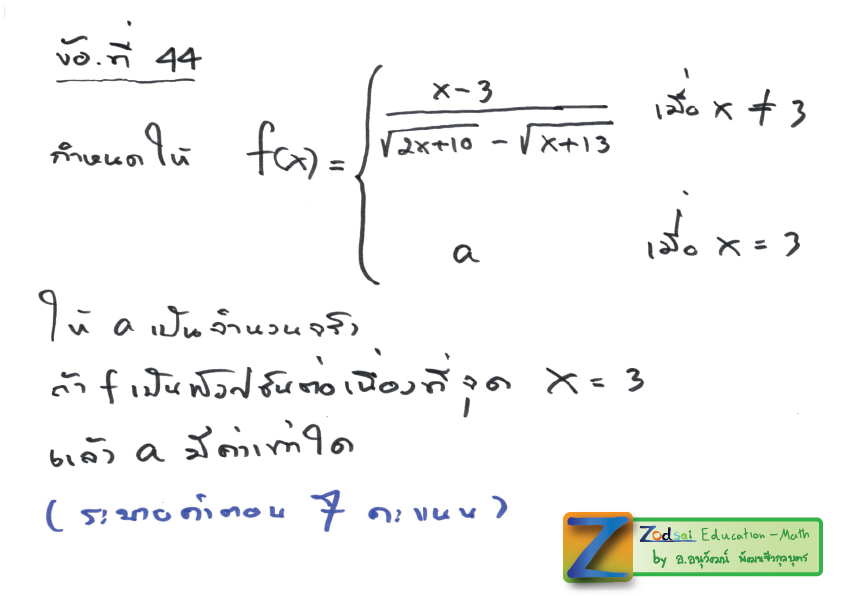 ข้อ.ที่ 44
กำหนดให้ f(x) = { x-3 / (√2x+10 - √x+13) เมื่อ x ≠ 3
a เมื่อ x = 3
ให้ a เป็นจำนวนจริง
ถ้า f เป็นฟังก์ชันต่อเนื่องที่จุด x = 3
แล้ว a มีค่าเท่าใด
(ระบายคำตอบ 7 คะแนน)
Z Zodsai Education - Math
by อ.อนุวัฒน์ พัฒนชีวกุลบุตร